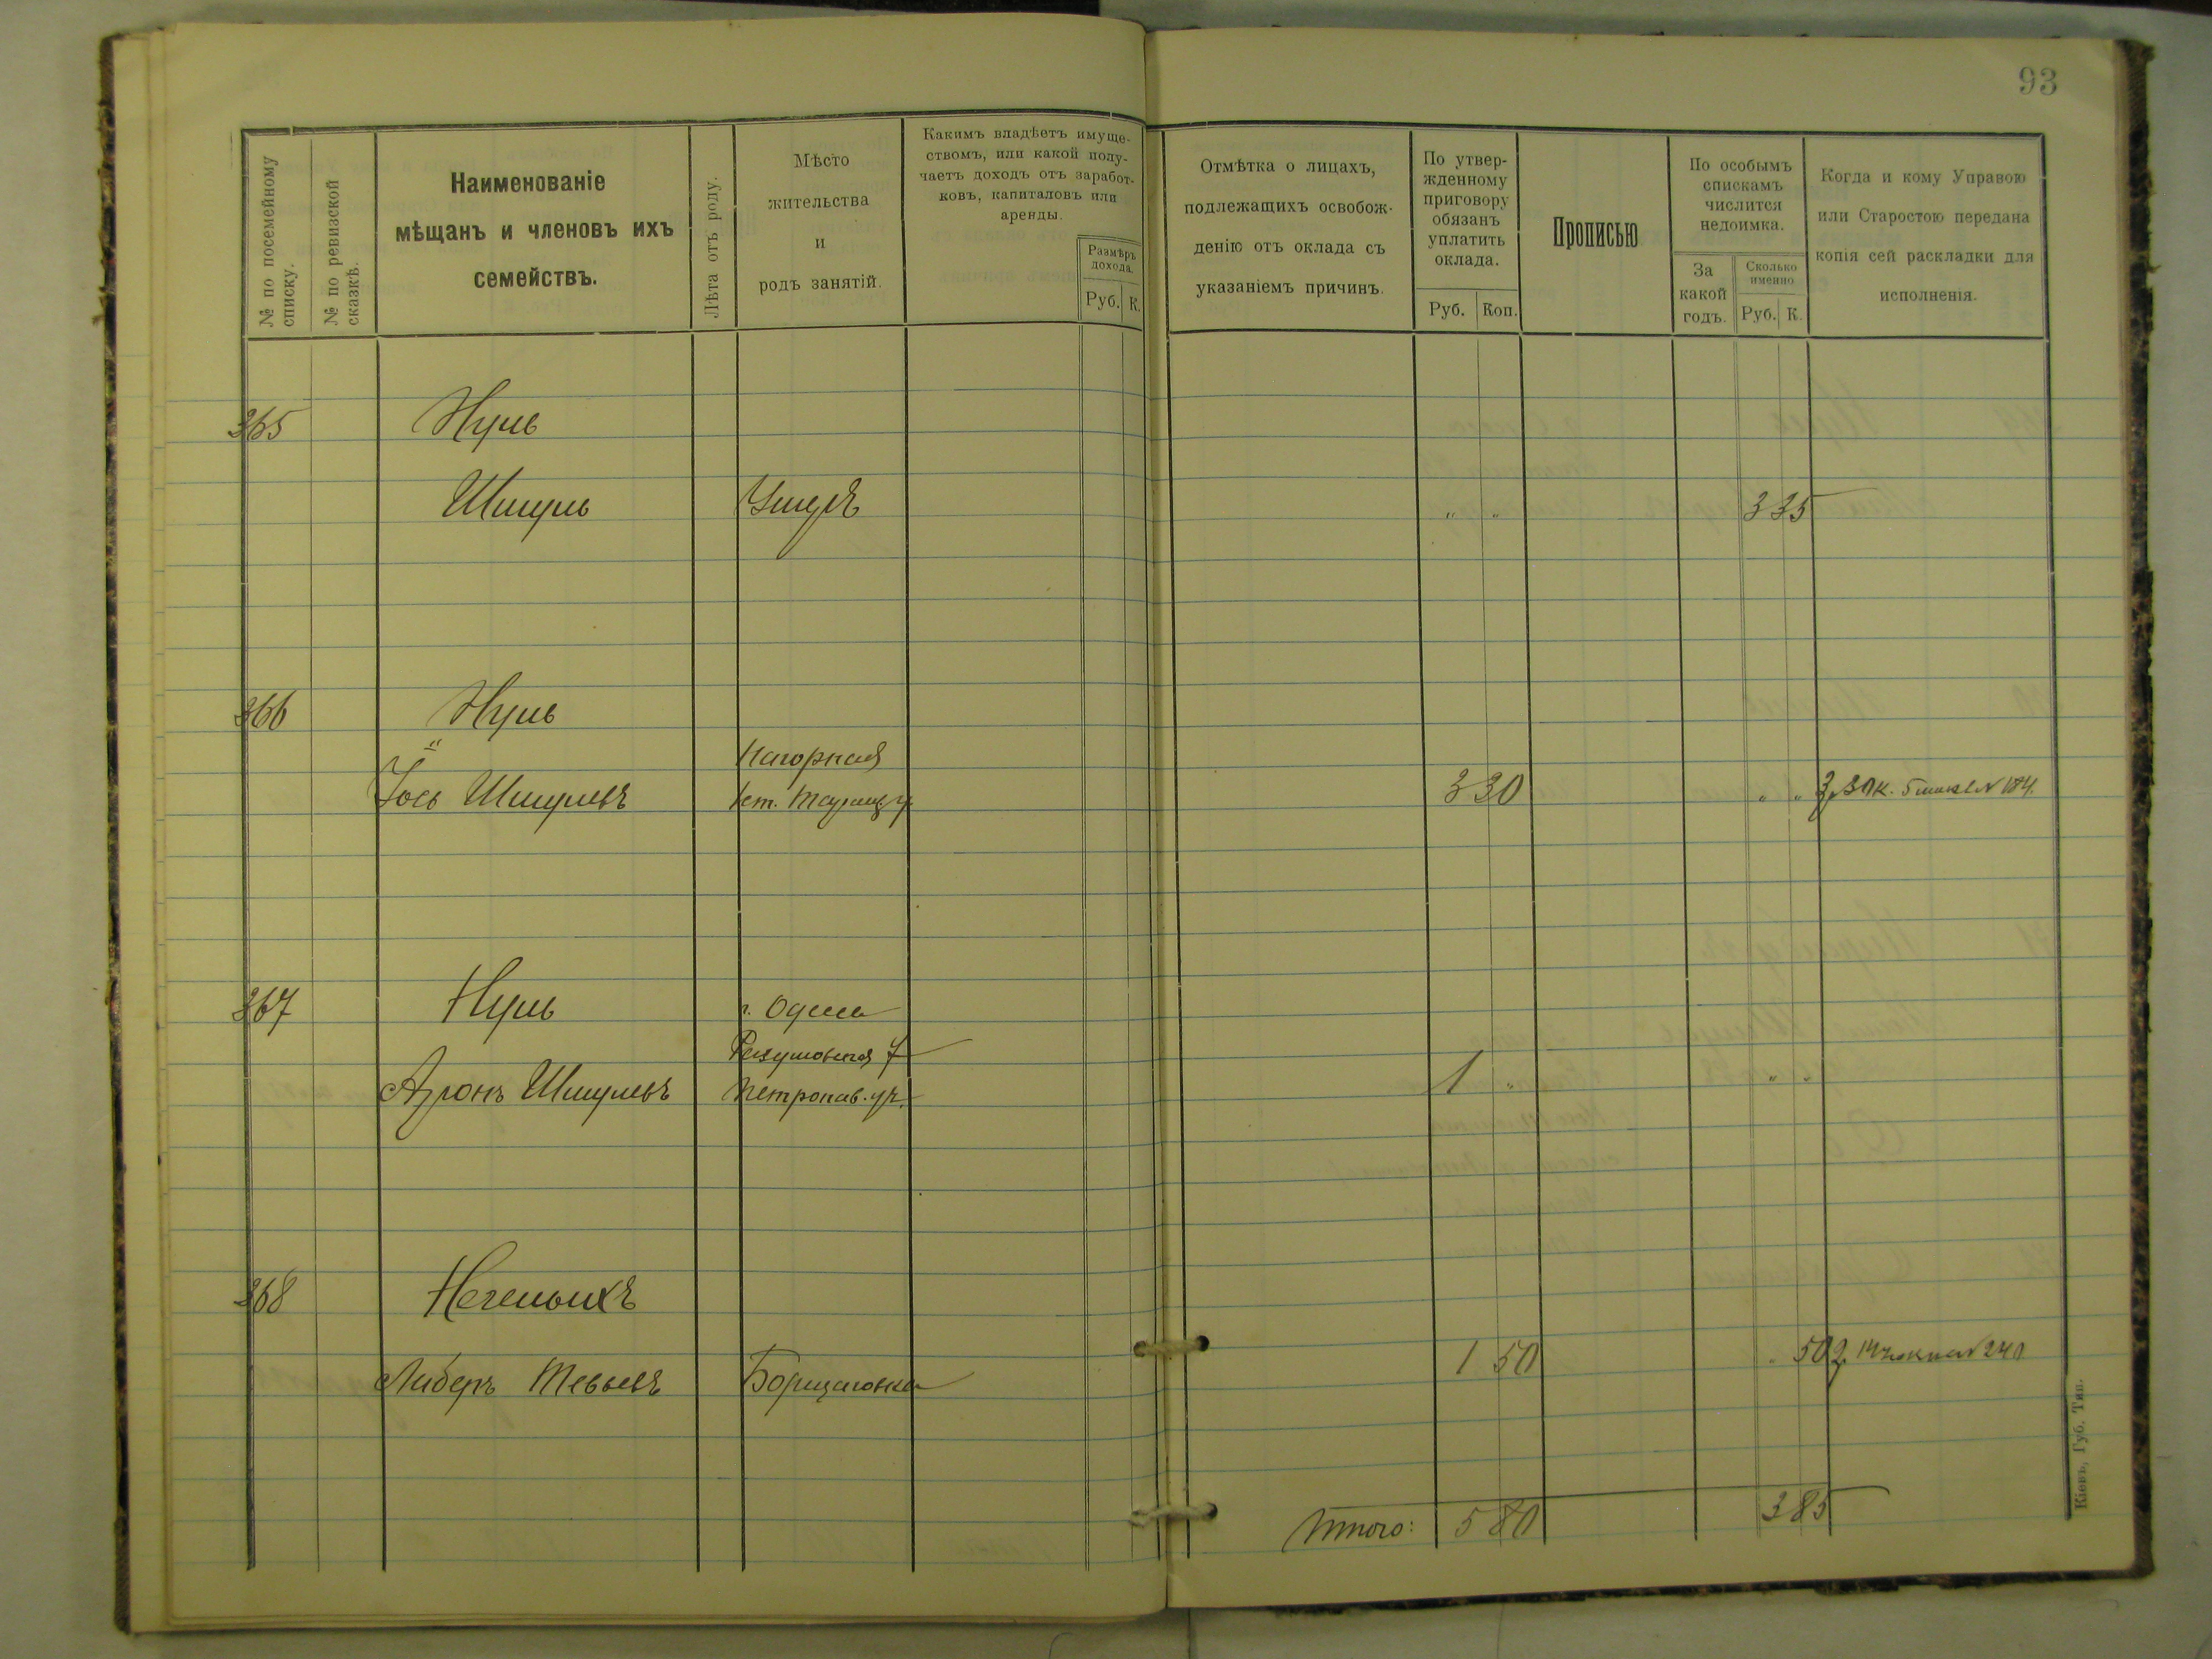 93
№ по посемейному списку.
№ по ревизской сказкѣ.
Наименованіе
мѣщанъ и членовъ ихъ
семействъ.
Лѣта отъ роду.
Мѣсто
жительства
и
родъ занятій.
Какимъ владѣетъ имуще-
ствомъ, или какой полу-
чаетъ доходъ отъ заработ-
ковъ, капиталовъ или
аренды.
Размѣръ
дохода.
Руб. К.
Отмѣтка о лицахъ,
подлежащихъ освобож-
денію отъ оклада съ
указаніемъ причинъ.
По утвер-
жденному
приговору
обязанъ
уплатить
оклада.
Руб. Коп.
Прописью
По особымъ
спискамъ
числится
недоимка.
За
какой
годъ.
Сколько
именно
Руб. К.
Когда и кому Управою
или Старостою передана
копія сей раскладки для
исполненія.
365 Нуль
Шмуль Умеръ " " 3 35
366 Нуль
"
Нагорная
Іось Шмулевъ 3 30 " " 3р 30к. № 184.
367 Нуль г. Одесса
7
Аронъ Шмулевъ Петропав. ул. 1 " " "
368
Либеръ Тевьевъ Борщаговка 1 50 " 50 № 240
Итого: 5 80 3 85
Кіевъ, Губ. Тип.